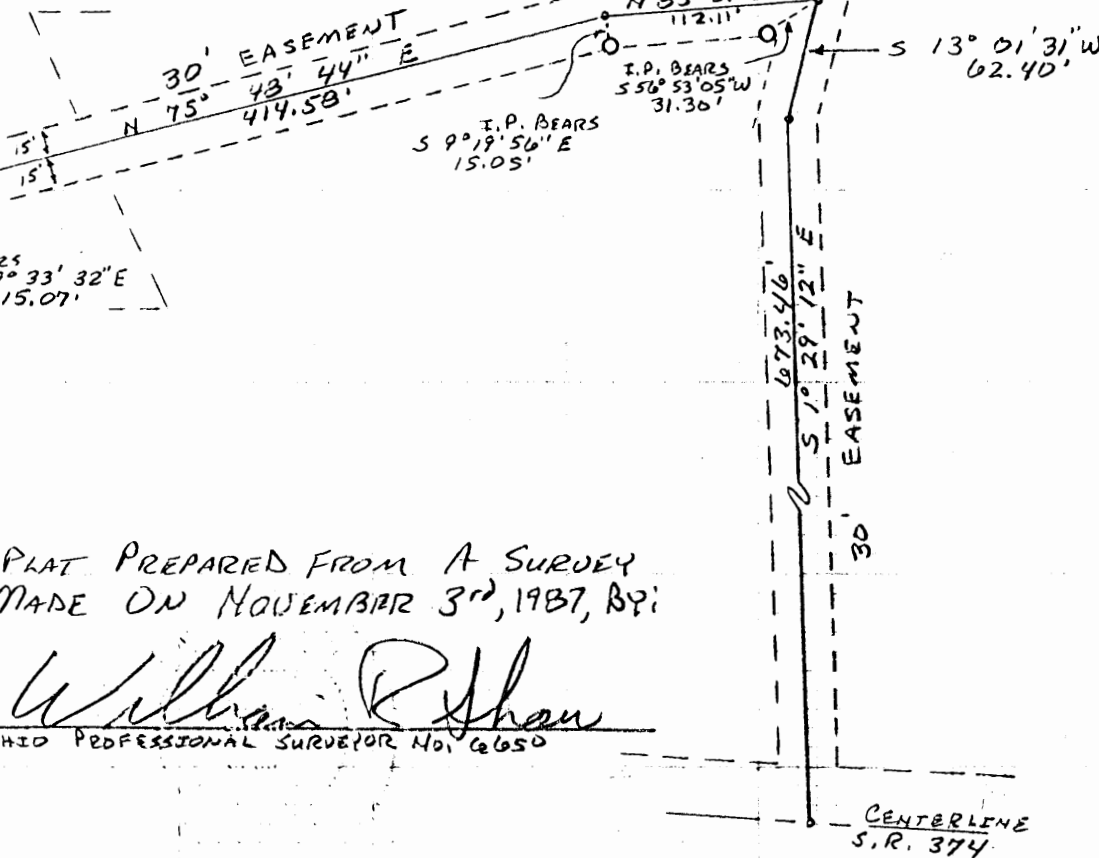 112.11'
30' EASEMENT
N 75° 43' 44" E
414.58'
15'
15'
S 13° 01' 31" W
62.40'
I.P. BEARS
S 56° 53' 05" W
31.30'
I.P. BEARS
S 9° 19' 56" E
15.05'
33' 32" E
15.07'
673.46'
S 1° 29' 12" E
30' EASEMENT
PLAT PREPARED FROM A SURVEY
MADE ON NOVEMBER 3rd, 1987, BY:
William R Shaw
HIO PROFESSIONAL SURVEYOR NO. 6650
CENTERLINE
S.R. 374